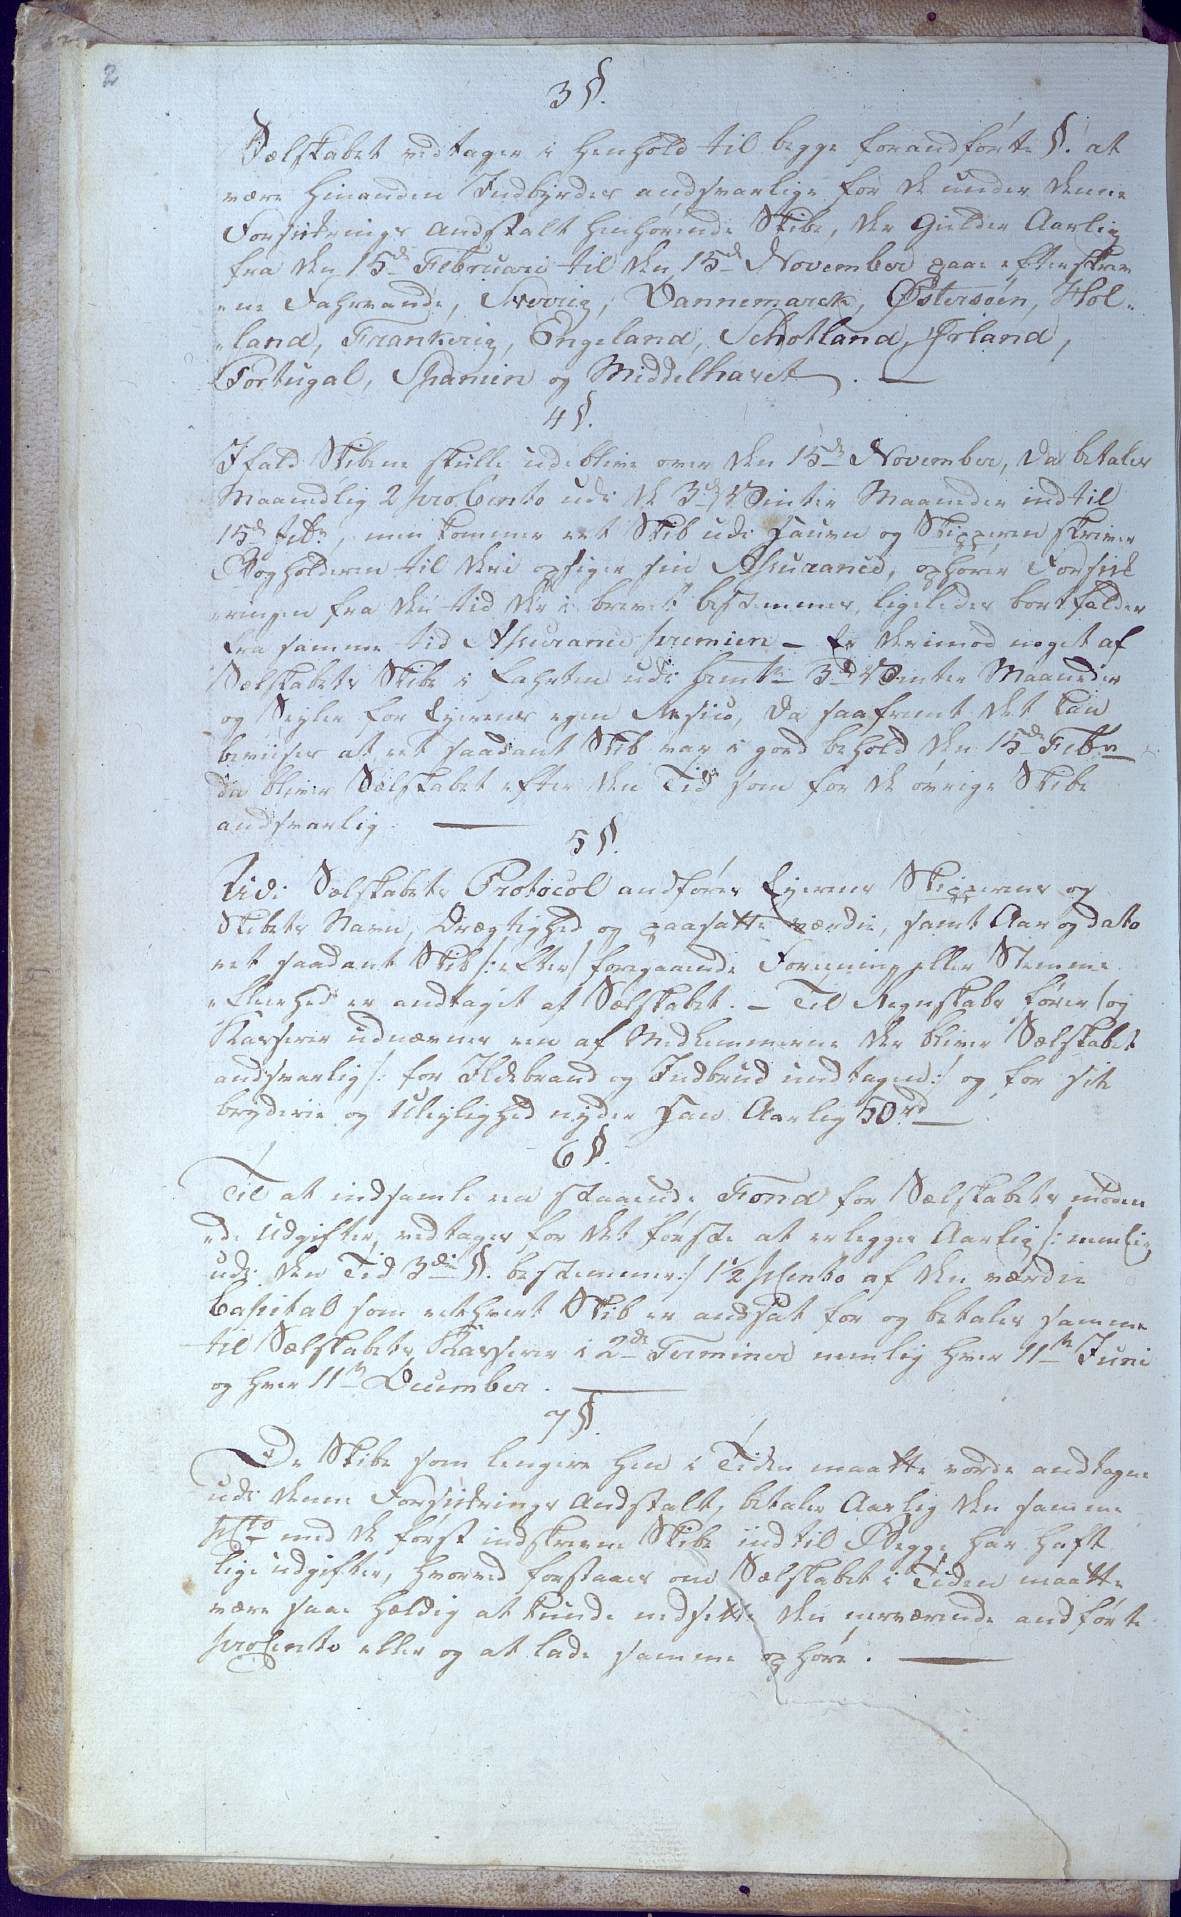 2
3 §.
Selskabet vedtager i Henhold til begge forandførte §. at
være hinanden Indbyrdes andsvarlige for de under denne
Forsikrings Andstalt henhørende Skibe, der Gielder Aarlig
fra den 15de Februari til den 15de November paa efterskrev
ene Fahrvande, Sverrig, Dannemarck, Østersøen, Hol-
-land, Frankerig, Engeland, Schotland, Irland,
Portugal, Spanien og Middelhavet. —
4 §.
Ifald Skibene skulle udeblive over den 15de November, da betales
Maanedlig 2 proCento udi de 3de Vinter Maaneder indtil
15de febr, men kommer eet Skib udi Havn og Skipperen skriver
Bogholderen til deri opsiger sin Assurance, ophører Forsik
ringen fra den tid der i brevet bestemmes, ligeledes bortfalder
fra samme tid Assurance præmien — Er derimod noget af
Selskabets Skibe i Fahrten udi 3de Vinter Maaneder
og Seyler for Eyernes egen Resico, da saafremt det kan
bevises at eet saadant Skib var i good behold den 15de Febr
da bliver Selskabet efter den Tid som for de øvrige Skibe
andsvarlig. —
5 §.
Udi Selskabets Protocol andføres Eyernes Skipperens og
Skibets Navn, Drægtighed og paasatte værdie, samt Aar og dato
eet saadant Skib /: efter foregaaende Foreening eller Stemme
-fleerhed er andtaget af Selskabet. — Til Regnskabs fører og
Kasserer udnævnes een af Medlemmerne der bliver Selskabet
andsvarlig /: for Ildebrand og Indbrud undtagen :/ og for sit
bryderie og Uleylighed nyder Han Aarlig 50 rd —
6 §.
Til at indsamle een staaende Fond for Selskabets møden
de Udgifter, vedtages for det første at erlegges Aarlig /: nemlig
udi den Tid 3die §. bestemmer :/ 1½ pCento af den værdie
Capital som ethvert Skib er andsat for og betales samme
til Selskabets Kasserer i 2de Terminer nemlig hver 11te Juni
og hver 11te December. —
7 §.
De Skibe som lengere hen i Tiden maatte vorde andtagne
udi denne Forsikrings Andstalt, betaler Aarlig den samme
pCto med de først indskrevne Skibe indtil Begge har haft
lige udgifter, hvorved forstaaes om Selskabet i Tiden maatte
være saa heldig at kunde nedsette den nerværende andførte
proCento eller og at lade samme ophøre. —